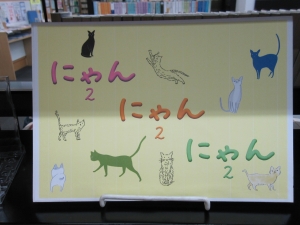 にゃん
2
にゃん
2
にゃん
2